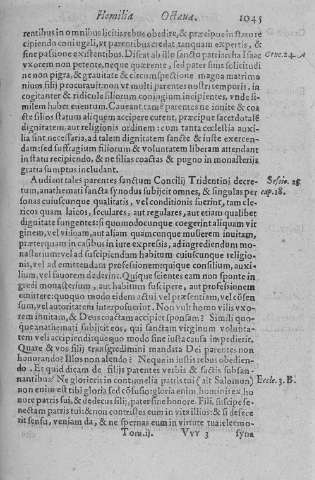 Homilia Octaua. 1045
rentibus in omnibus licitis rebus obedire, & præcipue in statu re
cipiendo coniugali, vt parentibus credat, tanquam expertis, &
sine passione existentibus. Discat ab illo sancto patriarcha Isaac Gene. 24. A
vxorem non petente, neque quærente, sed pater sium solicitudi
ne non pigra, & grauitate & circumspectione magna matrimo
nium filij procurauit: non vt multi parentes nostri temporis, in
cogitanter & ridicule filiorum coniugium incipientes, vnde
miserum haber euentum. Caueant tamen parentes ne
cte filios statum aliquem accipere curent, præcipue sacerdotalē
dignitatem, aut religionis ordinem: cum tanta cœlestis auxi
lia sint necessaria, ad talem dignitatem sancte & iuste exercen
dam: sed suffragium filiorum & voluntatem liberam attendant
in statu recipiendo, & ne filias coactas & pugno in monasterija
gratia sumptus includant.
Audiant tales parentes sanctum Concilij Tridentini decre- Sessio. 25
tum, anathemati sancta synodus subijcit omnes, & singulas per cap. 18.
sonas cuiuscunque qualitatis, vel conditionis fuerint, tam cle-
ricos quam laicos, seculares, aut regulares, aut etiam qualibet
dignitate fungentes: si quomodocunque coegerint aliquam vir
ginem, vel viduam, aut aliam quamcunque mulierem inuitam,
præterquam in casibus in iure expressis, ad ingrediendum mona-
sterium: vel ad suscipiendum habitum cuiuscunque religio-
nis, vel ad emittendam professionem: eique consilium, auxi-
lium, vel fauorem dederint. Quique scientes eam non sponte in
gredi monasterium, aut habitum suscipere, aut professionem
emittere: quoquo modo eidem actui vel præsentiam, vel cōsen
sum, vel autoritatem interposuerint. Non vult homo vilis vxo-
rem inuitam, & Deus coactam accipiet sponsam? Simili quo-
que anathemati subijcit eos, qui sanctam virginum volunta-
tem veli accipiendi quoquo modo sine iusta causa impedierit.
Quare & vos filij transgredimini mandata Dei parentes non
honorando? Illos non alendo? Neque in iustis rebus obedien-
do. Et quid dicam de filijs parentes verbis & factis subsan-
nantibus? Ne glorieris in contumelia patris tui (ait Salomon) Eccle. 3. B.
non enim est tibi gloria sed cōfusio: gloria enim hominis ex ho
nore patris sui, & dedecus filij, pater sine honore. Fili, suscipe se-
nectam patris tui: & non contristes eum in vita illius: & si defece
rit sensu, veniam da, & ne spernas eum in virtute tua: eleemo-
Tom. ij. Vvv 3 syna